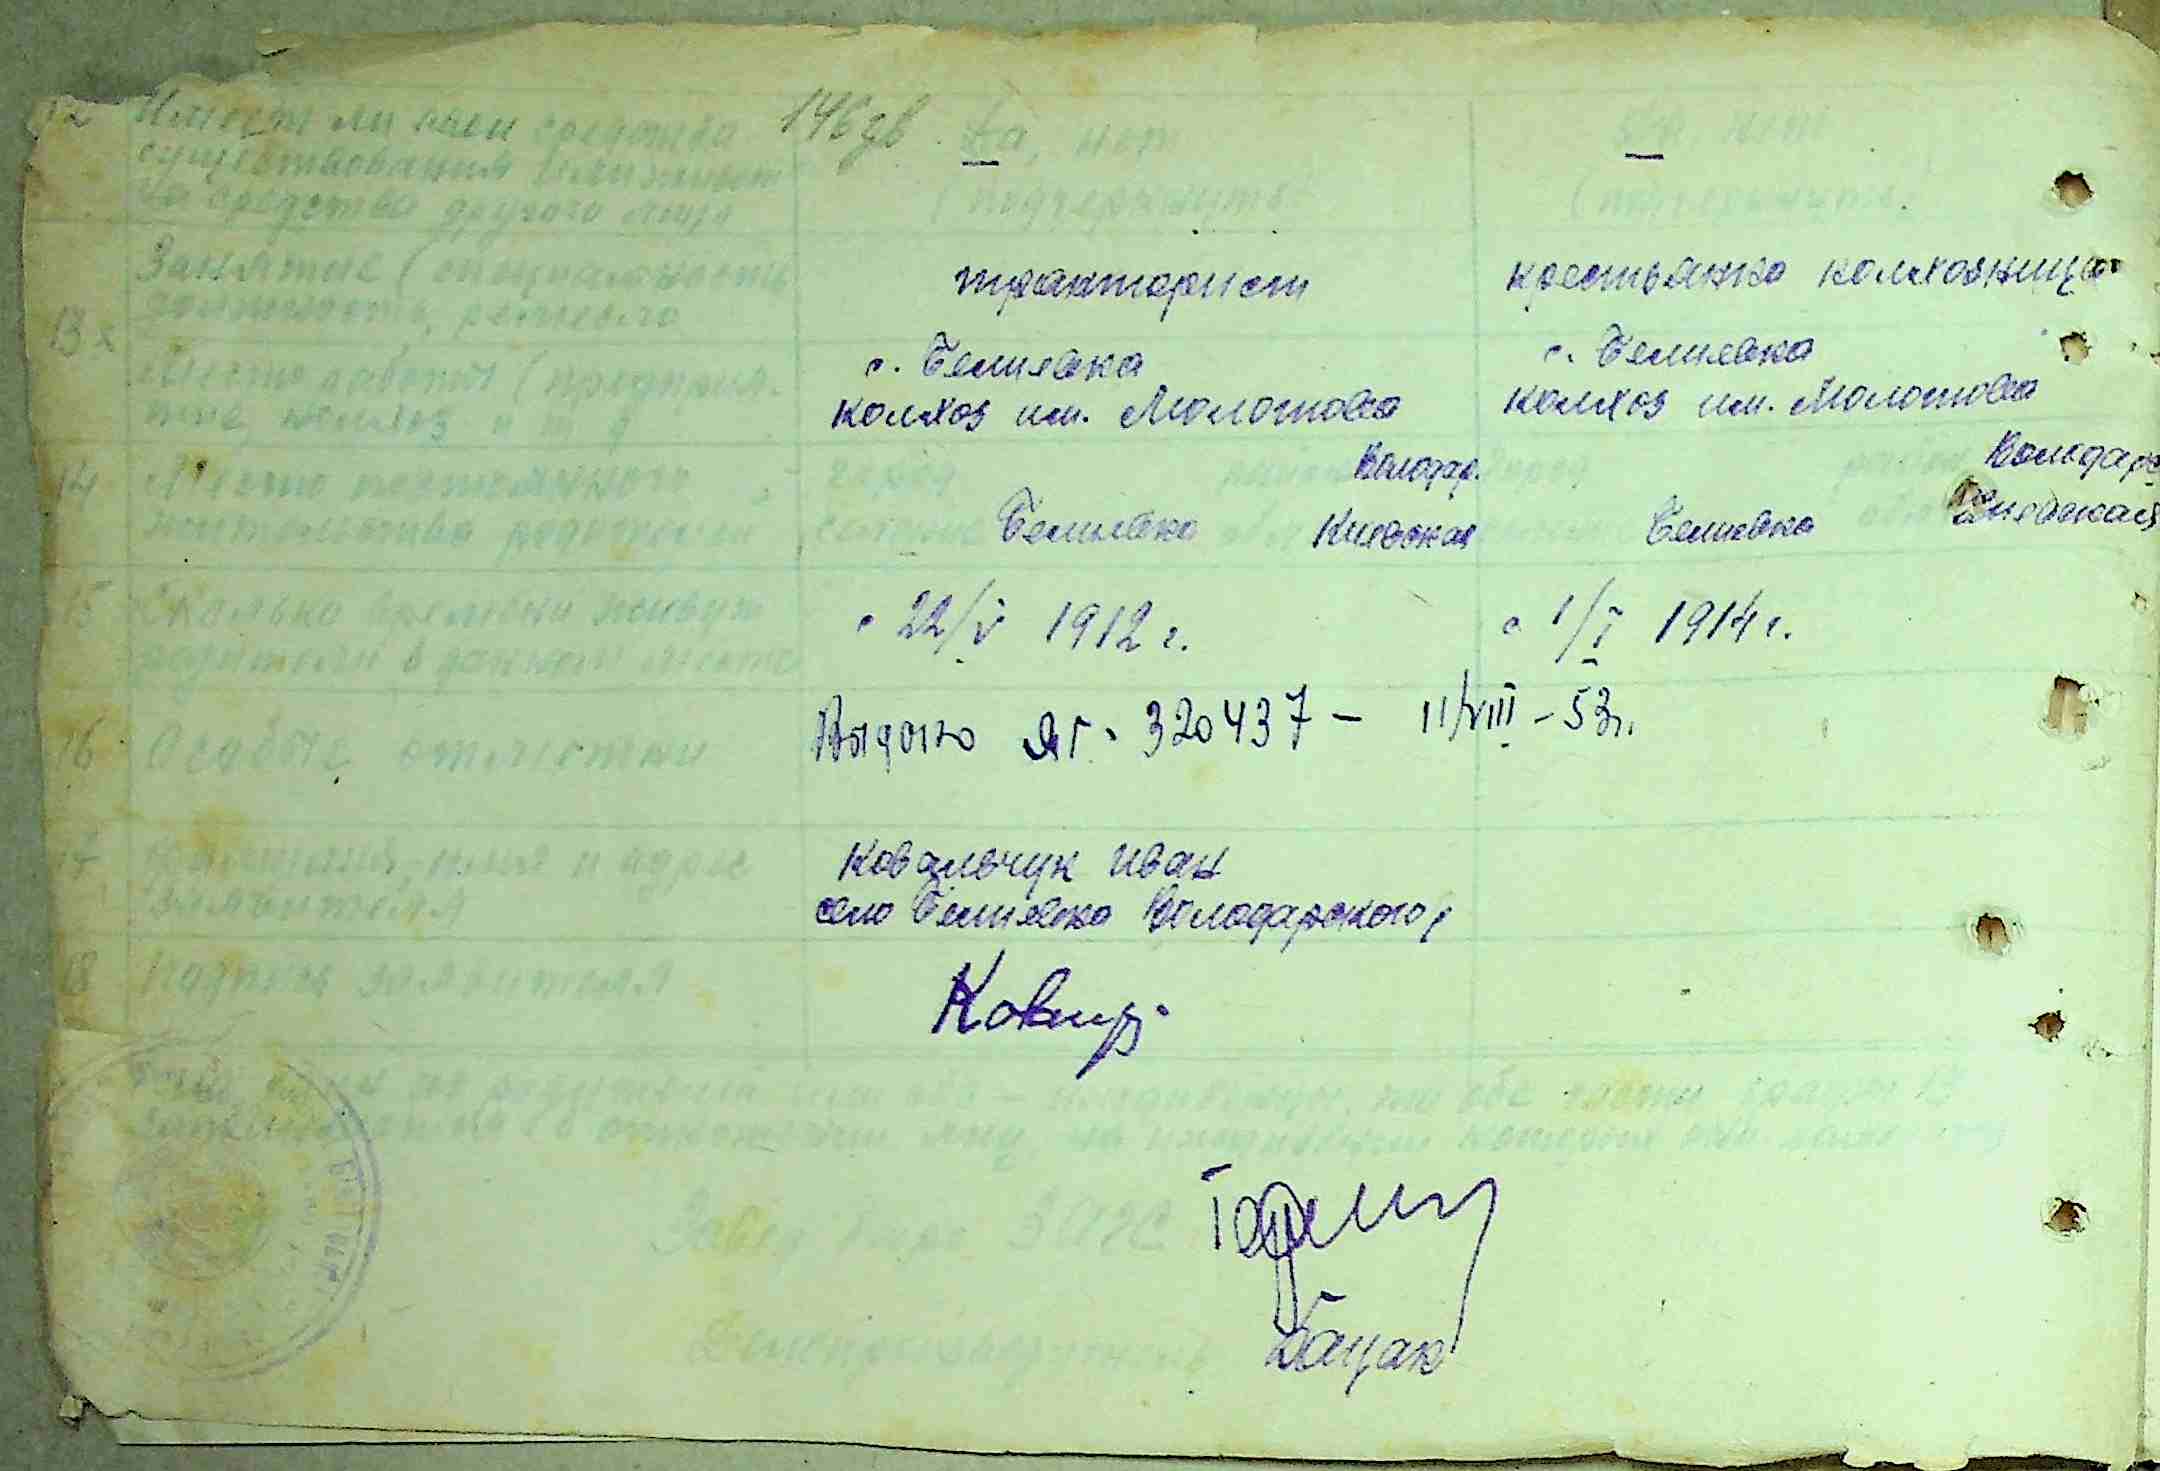 146 зв
12 Имеет ли свои средства Да, нет Да, нет
существования или живет
на средства другого лица (подчеркнуть) (подчеркнуть)
Занятие (специальность тракторист крестьянка колхозница
13 должность, ремесло
с. Белиевка с. Белиевка
Место работы (предприя-
тие, колхоз и т д колхоз им. Молотова колхоз им. Молотова
14 Место постоянного город район Володар. город район Володарс
жительства родителей селение Белиевка обл Киевская Белиевка обл Киевская
15 Сколько времени живут с 22/V 1912 г. с 1/I 1914 г.
родители в данном месте
16 Особые отметки Выдано ЯГ. 320437 – 11/VIII – 53 г.
17 Фамилия, имя и адрес Ковальчук Иван
заявителя село Белиевка Володарского р
18 Подпись заявителя
один из родителей или оба –
Завед бюро ЗАГС
Делопроизводитель